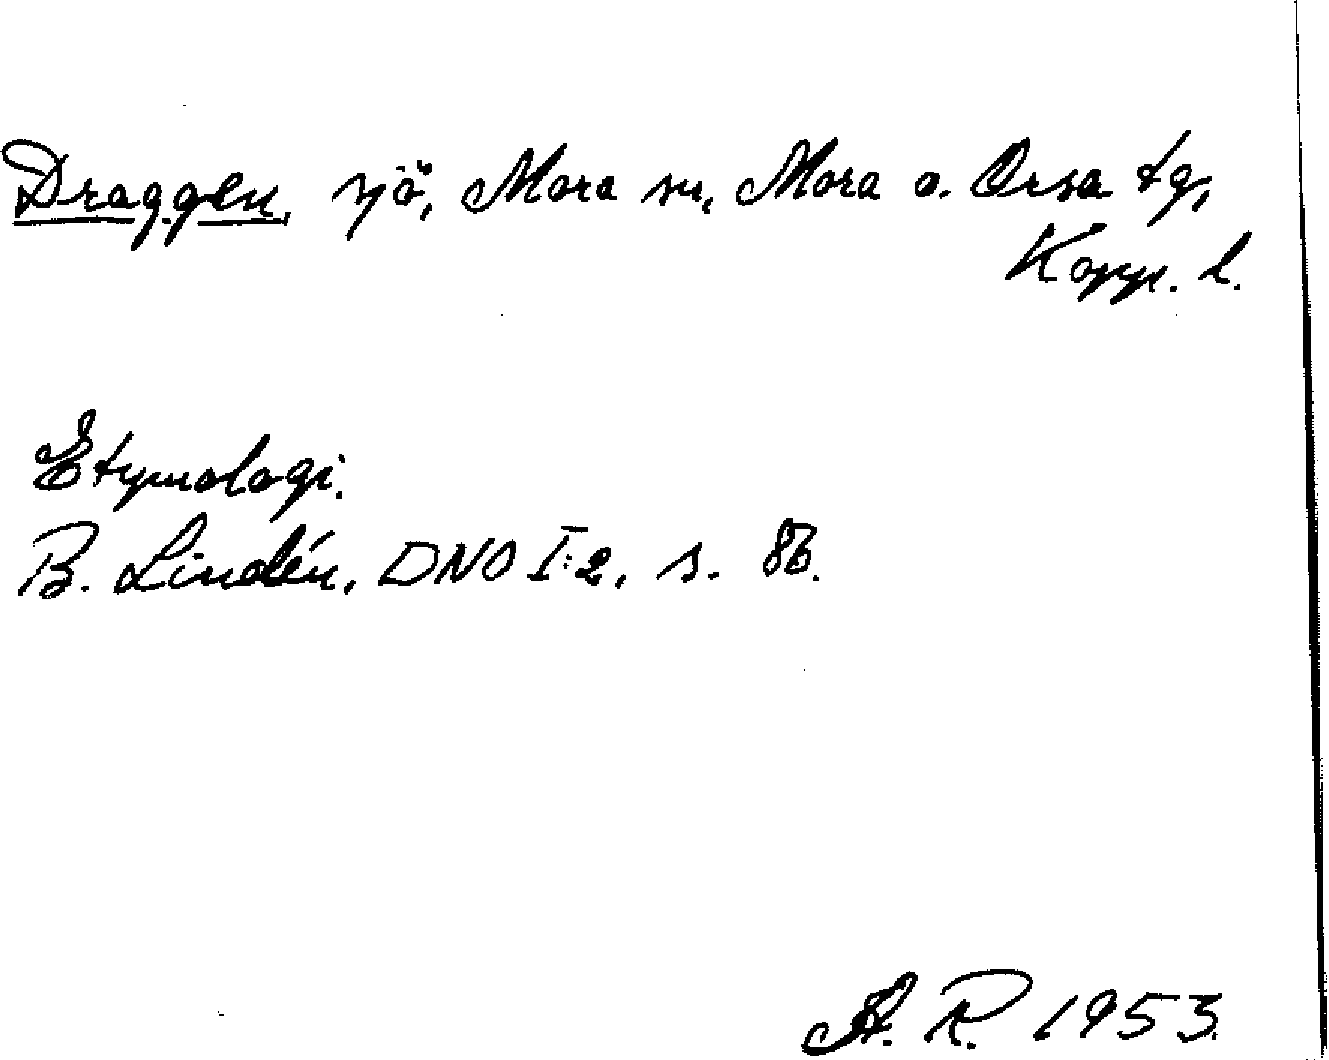 Draggen, sjö, Mora sn, Mora o. Orsa tg,
Kopp. l.
Etymologi.
B. Lindén, DNO I:2, s. 86.
A. R. 1953.